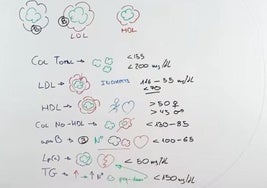 B B
LDL HDL
Col Total → <155
<200 mg/dl
LDL → INDIRECTO 116-55 mg/dl
<70
HDL → >50 ♀
>45 ♂
Col No-HDL → <130-85
apoB → B Nº <100-65
Lp(a) → <50 mg/dl
TG → ↑ → ↑ Nº <150 mg/dl